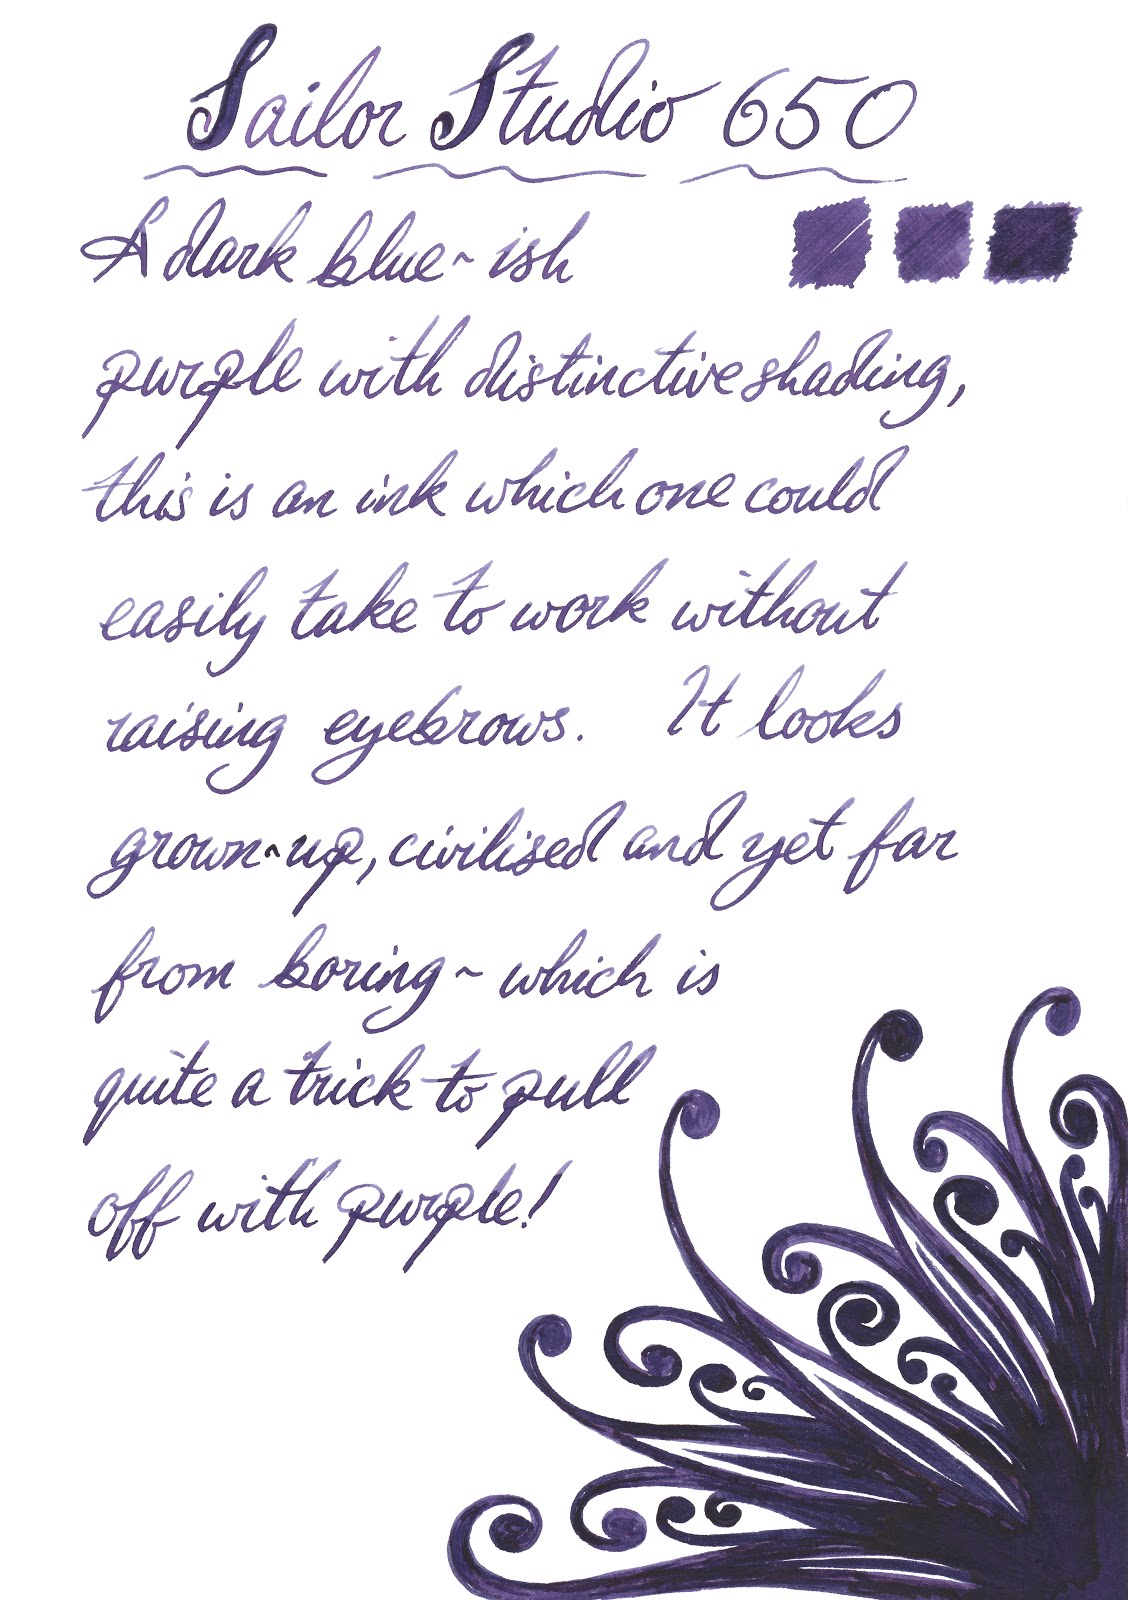 Sailor Studio 650
A dark blue~ish
purple with distinctive shading,
this is an ink which one could
easily take to work without
raising eyebrows. It looks
grown~up, civilised and yet far
from boring ~ which is
quite a trick to pull
off with purple!